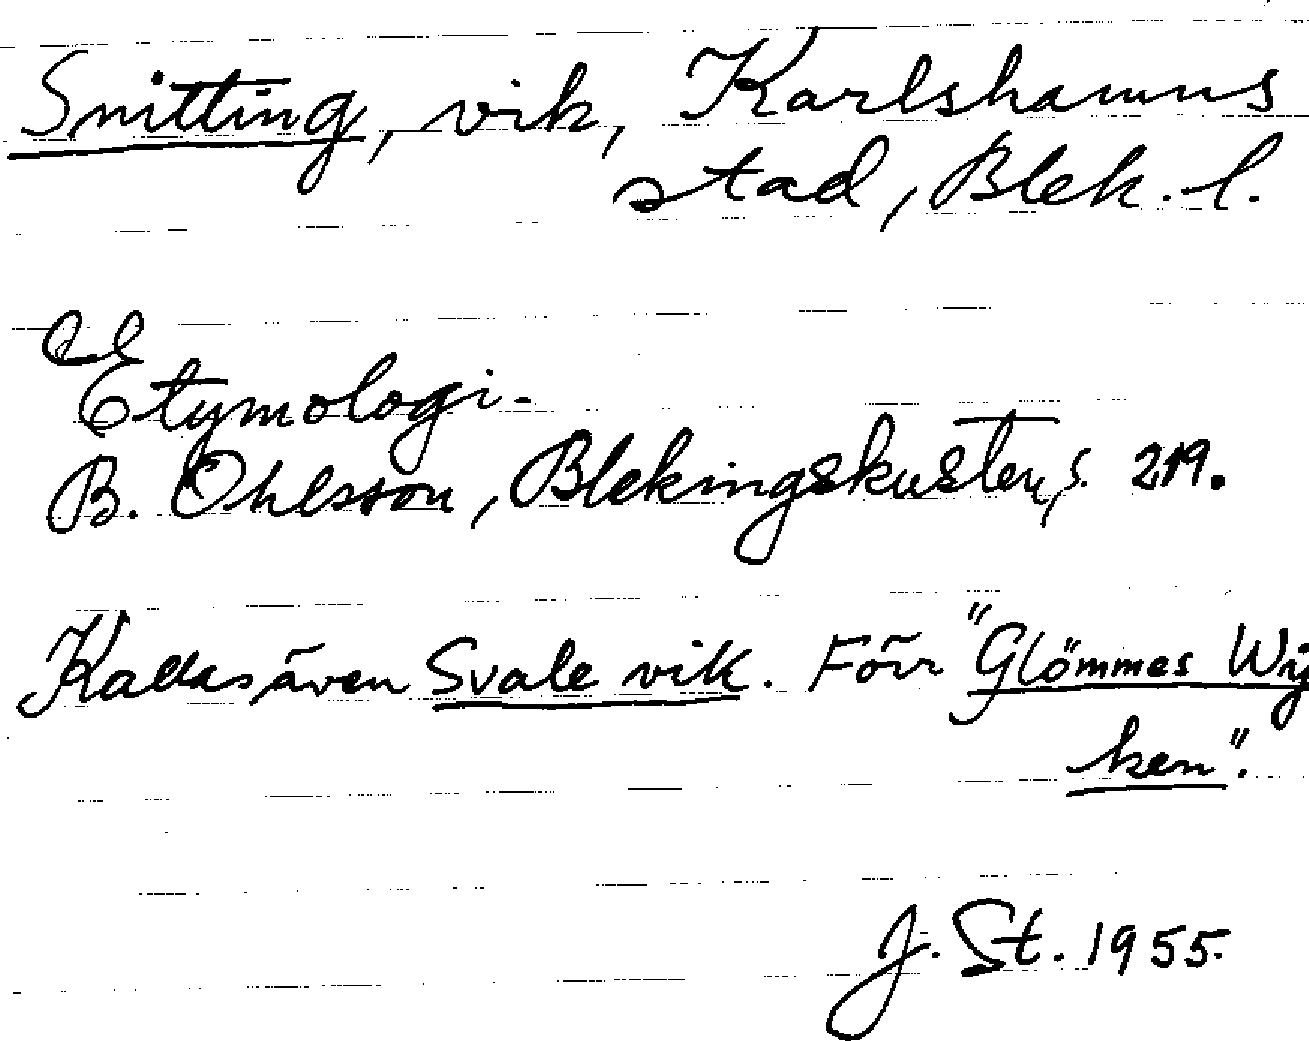 Snitting, vik, Karlshamns
stad, Blek. l.
Etymologi.
B. Ohlsson, Blekingskusten, s. 219.
Kallas även Svale vik. Förr "Glömmes Wij
ken".
J. St. 1955.